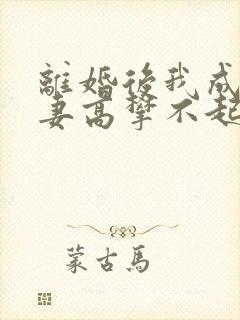 離婚後我成
妻高攀不起
蒙古馬